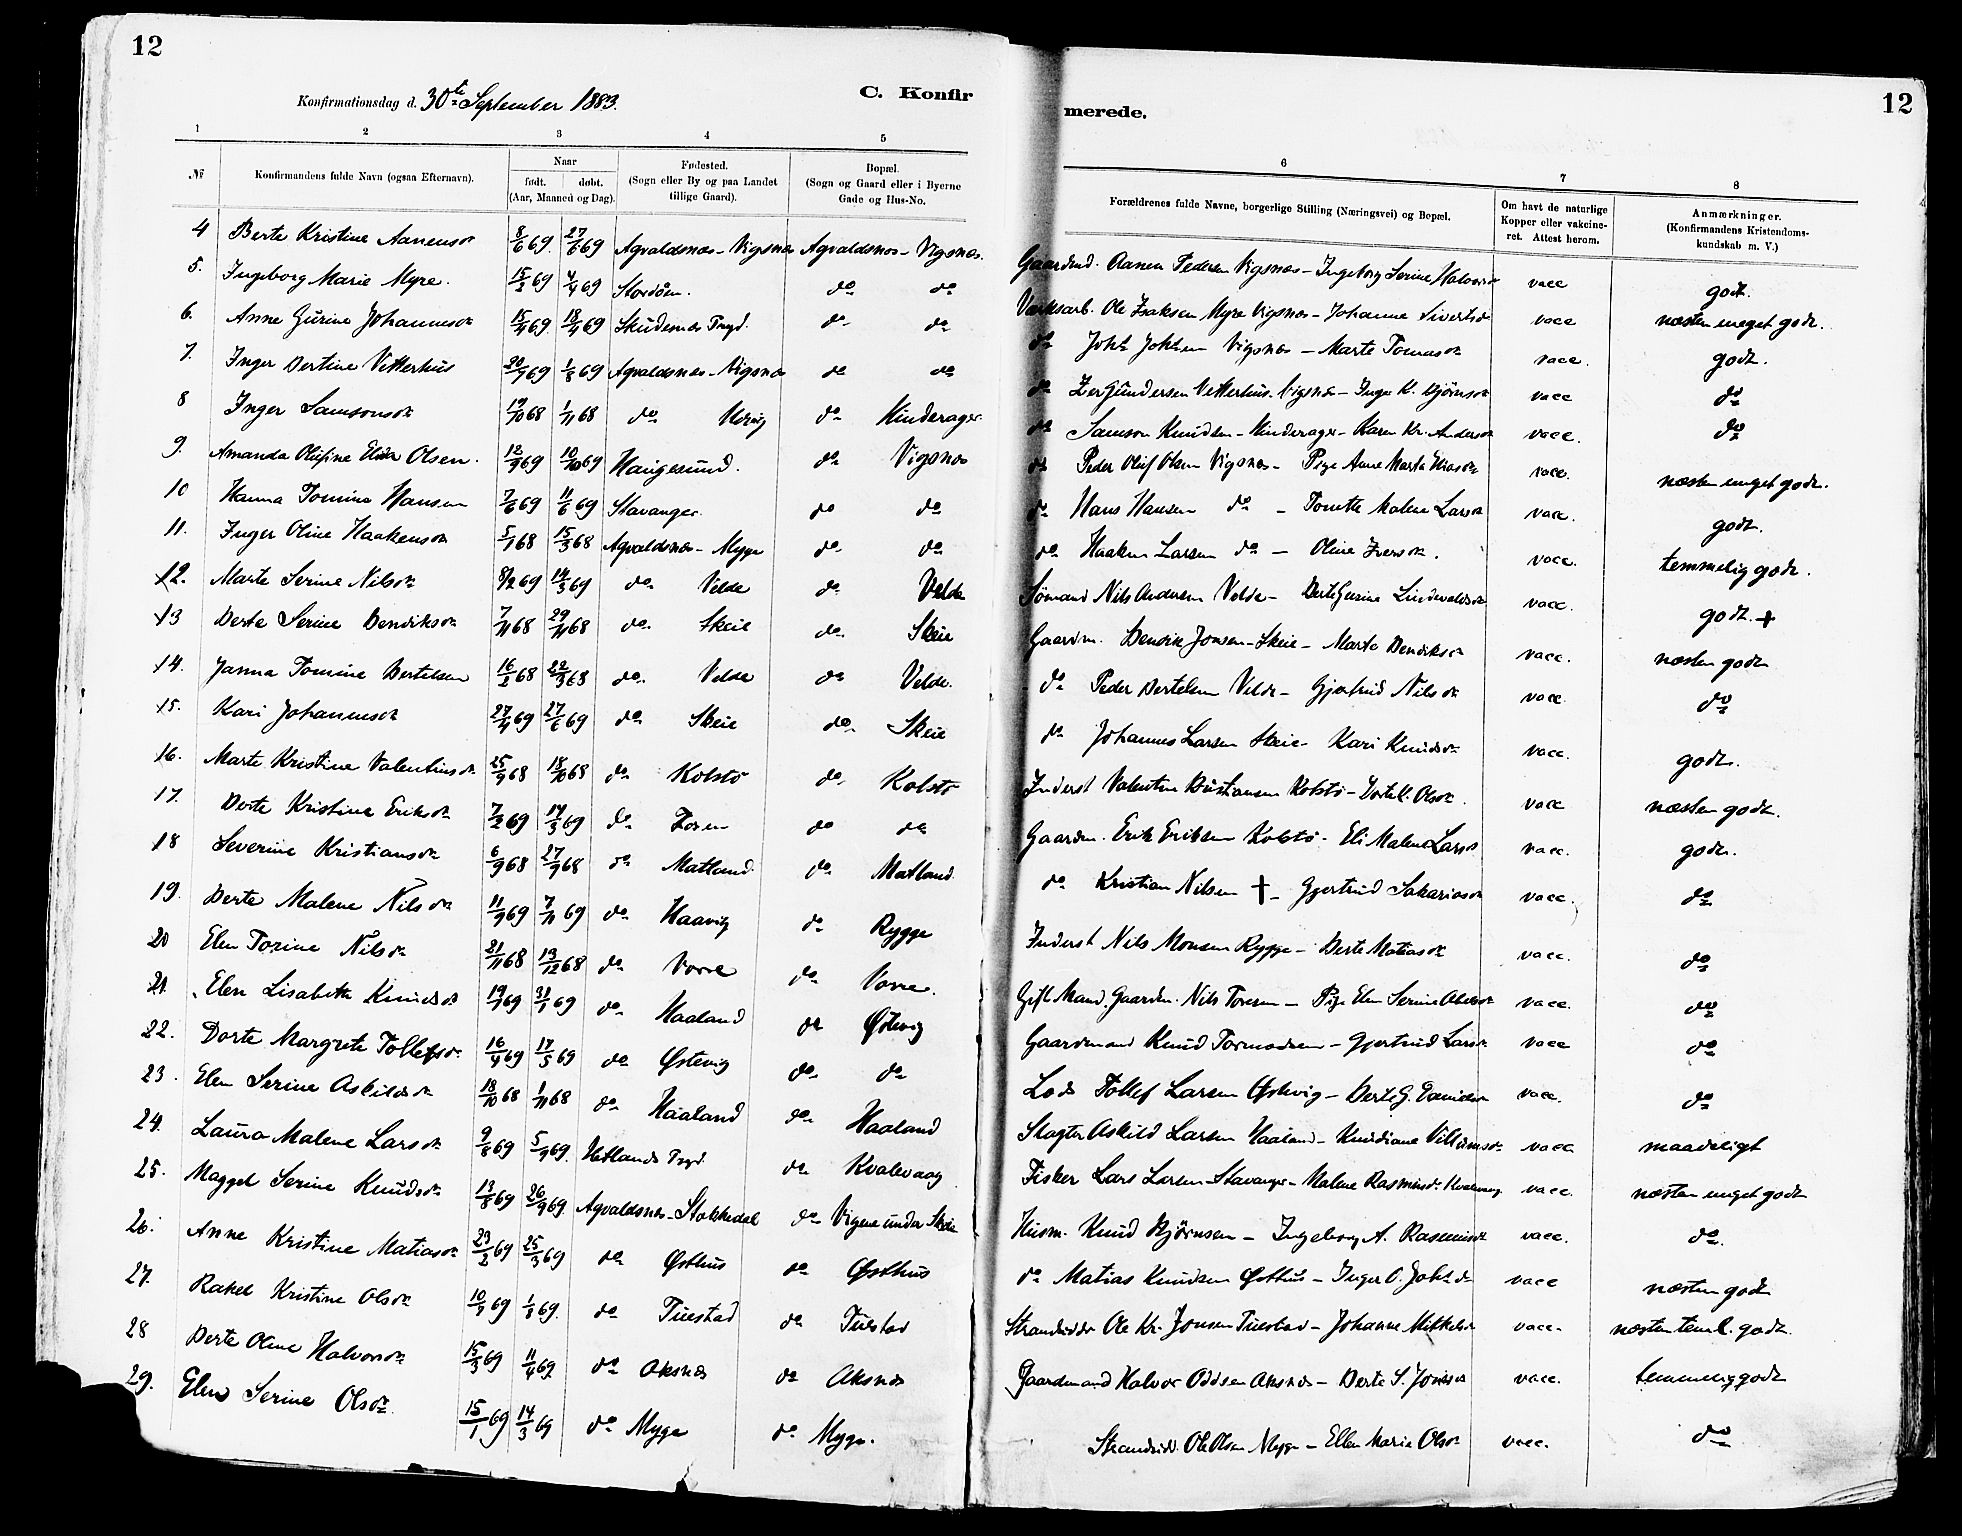 12
12
Konfirmationsdag d. 30te September 1883.
C. Konfir
merede.
1 2 3 4 5 6 7 8
№ Konfirmandens fulde Navn (ogsaa Efternavn). Naar født. døbt. (Aar, Maaned og Dag). Fødested. (Sogn eller By og paa Landet tillige Gaard). Bopæl. (Sogn og Gaard eller i Byerne Gade og Hus-No. Forældrenes fulde Navne, borgerlige Stilling (Næringsvei) og Bopæl. Om havt de naturlige Kopper eller vakcineret. Attest herom. Anmærkninger. (Konfirmandens Kristendomskundskab m. V.)
4 Berte Kristine Aanensdr 8/6 69. 27/6 69 Agvaldsnæs - Vigsnæs Agvaldsnæs - Vigsnæs. Gaardmd. Aanen Pedersen Vigsnæs - Ingeborg Serine Halvorsdr vacc godt.
5. Ingeborg Marie Myre. 15/2 69 4/4 69 Stordøen. do do Værksarb. Ole Isaksen Myre Vigsnæs - Johanne Sivertsdr vacc næsten meget godt.
6. Anne Gurine Johannesdr 15/4 69 18/4 69 Skudesnæs Prgd. do do do Johs Johsen Vigsnæs - Marte Tomasdr vacc. godt.
7. Inger Bertine Vetterhus 20/7 69 1/8 69 Agvaldsnæs - Vigsnæs do do do Gundersen Vetterhus. Vigsnæs - Inger K. Bjørnsdr vacc do
8 Inger Samsonsdr 19/10 68 1/11 68 do do Kinderager do Samson Knudsen - Kinderager - Karen Kr. Andersdr vacc. do
9. Amanda Olufine Elisa Olsen. 12/9 69 10/10 69 Haugesund. do Vigsnæs do Peder Oluf Olsen Vigsnæs - Pige Anne Marta vacc. næsten meget godt.
10 Hanna Tomine Hansen 7/6 69 11/6 69 Stavanger. do do do Hans Hansen do - Tonette Malene Larsdr vacc. godt.
11. Inger Oline Haakensdr 5/1 68 15/3 68 Agvaldsnæs - Myge do do do Haaken Larsen do - Oline Iversdr. vacc. temmelig godt.
12. Marte Serine Nilsdr 8/2 69 14/3 69 do Velde do Velde Sømand Nils Andersen Velde - Berte Gurine vacc. godt. +
13 Berte Serine Bendiksdr 7/11 68 29/11 68 do. Skeie do. Skeie Gaardm. Bendik Jonsen - Skeie - Marte Bendiksdr vacc. næsten godt
14. Janna Tomine Bertelsen 16/2 68 22/3 68 do. Velde do Velde. do Peder Bertelsen Velde - Gjertrud Nilsdr vacc. do
15. Kari Johannesdr 27/4 69 27/6 69 do Skeie do Skeie do Johannes Larsen Skeie - Kari Knudsdr vacc. godt.
16. Marte Kristine Valentinsdr 25/9 68 18/10 68 do Kolstø do. Kolstø Inderst Valentin Kristiansen Kolstø - Dorte C. Olsdr. vacc næsten godt.
17. Berte Kristine Eriksdr 7/2 69 14/3 69 do do do Gaardm. Erik Eriksen Kolstø - Eli Malene Larsdr vacc. godt.
18 Severine Kristiansdr 6/9 68 27/9 68 do Matland do Matland. do Kristian Nilsen † - Gjertrud Sakariasdr vacc. do
19. Berte Malene Nilsdr 11/9 69 7/11 69 do Haavig do Rygge Inderst Nils Monsen Rygge - Berte Matiasdr vacc. do
20 Elen Torine Nilsdr 21/11 68 13/12 68 do Vorre do Vorre. Gift Mand, Gaardm. Nils Toresen - Pige Elen Serine vacc. do
21. Elen Lisabeth Knudsdr 19/1 69 31/1 69 do. Haaland do Østevig Gaardmand Knud Tormodsen - Gjertrud Larsdr vacc do
22. Dorte Margrete Tollefsdr 16/4 69 17/5 69 do Østevig do do Lods Tollef Larsen Østevig - Berte G. vacc. do
23. Elen Serine Askildsdr 18/10 68 1/11 68 do Haaland do. Haaland Slagter Askild Larsen Haaland - Knudiane Villumsdr vacc maadeligt
24. Laura Malene Larsdr 9/8 69 5/9 69. Hetlands Prgd. do Kvalevaag Fisker Lars Larsen - Stavanger - Malene Rasmusdr Kvalevaag vacc. næsten meget godt
25. Maggel Serine Knudsdr 13/8 69 26/9 69. Agvaldsnæs - Stokkedal do Vigene under Skeie Husm. Knud Bjørnsen - Ingeborg A. Rasmusdr vacc. do.
26. Anne Kristine Matiasdr 23/2 69 25/3 69 do Østhus do Østhus do Matias Knudsen Østhus - Inger O. Johsdr vacc næsten godt
27. Rakel Kristine Olsdr 10/7 69 1/8 69. do Tuestad do Tuestad Strandsidder Ole Kr. Jonsen Tuestad - Johanne Mikkelsdr vacc. næsten teml. godt.
28 Berte Oline Halvorsdr 15/3 69 11/4 69 do Aksnæs do Aksnæs Gaardmand Halvor Oddsen Aksnæs - Berte S. Jonsdr vacc. temmelig godt
29. Elen Serine Olsdr. 15/1 69 14/3 69 do Myge do Myge. Strandsidd. Ole Olsen Myge - Ellen Marie Olsdr vacc. do